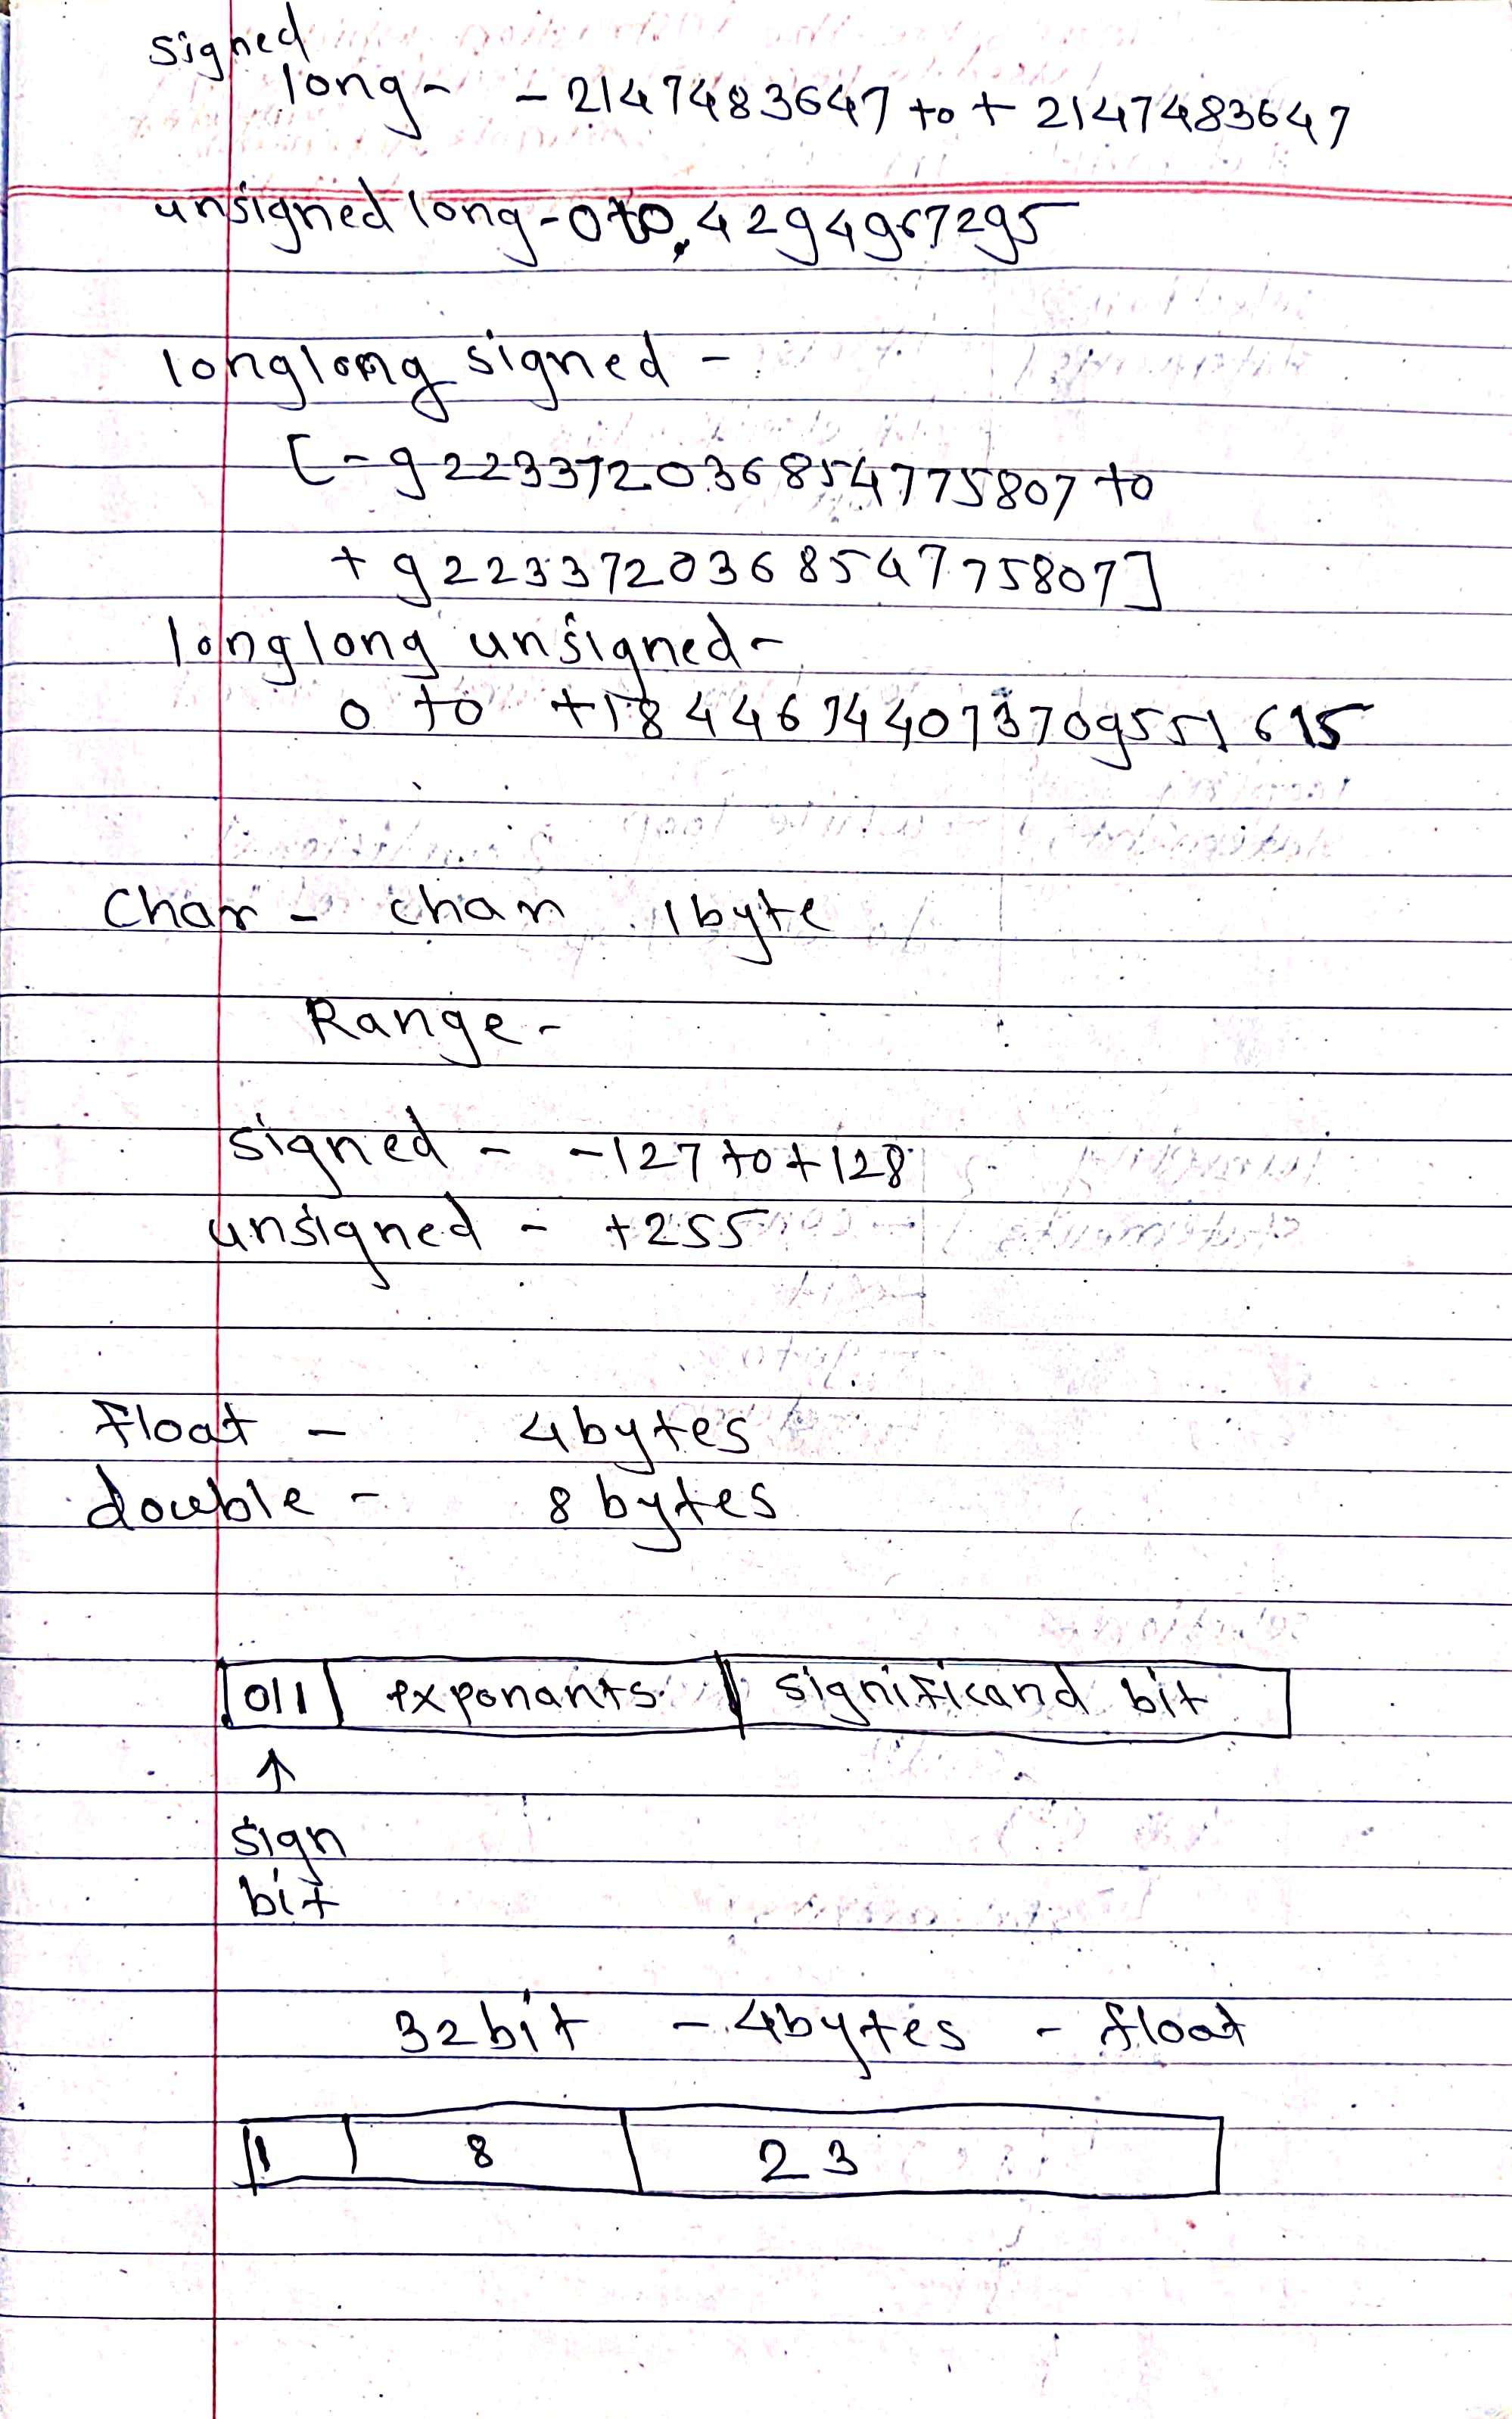 signed
long - - 2147483647 to + 2147483647
unsigned long - 0 to, 4294967295
longlong signed -
[-9223372036854775807 to
+9223372036854775807]
longlong unsigned -
0 to +18446744073709551615
Char - char 1byte
Range -
signed - -127 to +128
unsigned - +255
Float - 4bytes
double - 8 bytes
0/1 exponants significand bit
↑
sign
bit
32bit - 4bytes - float
1 8 23